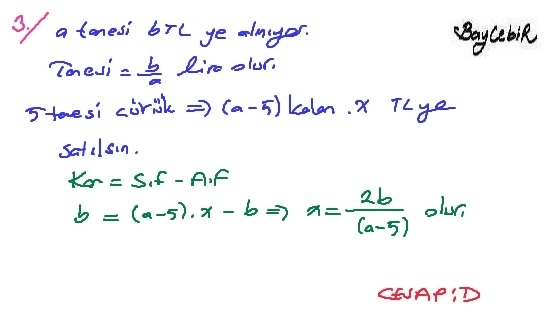 3./ a tanesi bTL ye alınıyor.
BayCebir
Tanesi = b/a lira olur.
5 tanesi çürük ⇒ (a-5) kalan . x TL ye
satılsın.
Kar = S.f - A.f
b = (a-5).x - b ⇒ x = 2b/(a-5) olur.
CEVAP:D